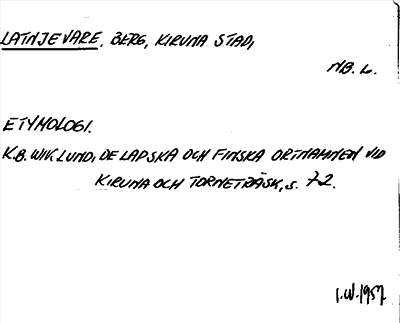 LATNJEVARE, BERG, KIRUNA STAD,
NB. L.
ETYMOLOGI.
K.B. WIKLUND, DE LAPSKA OCH FINSKA ORTNAMNEN VID
KIRUNA OCH TORNETRÄSK, S. 72.
I.W. 1957